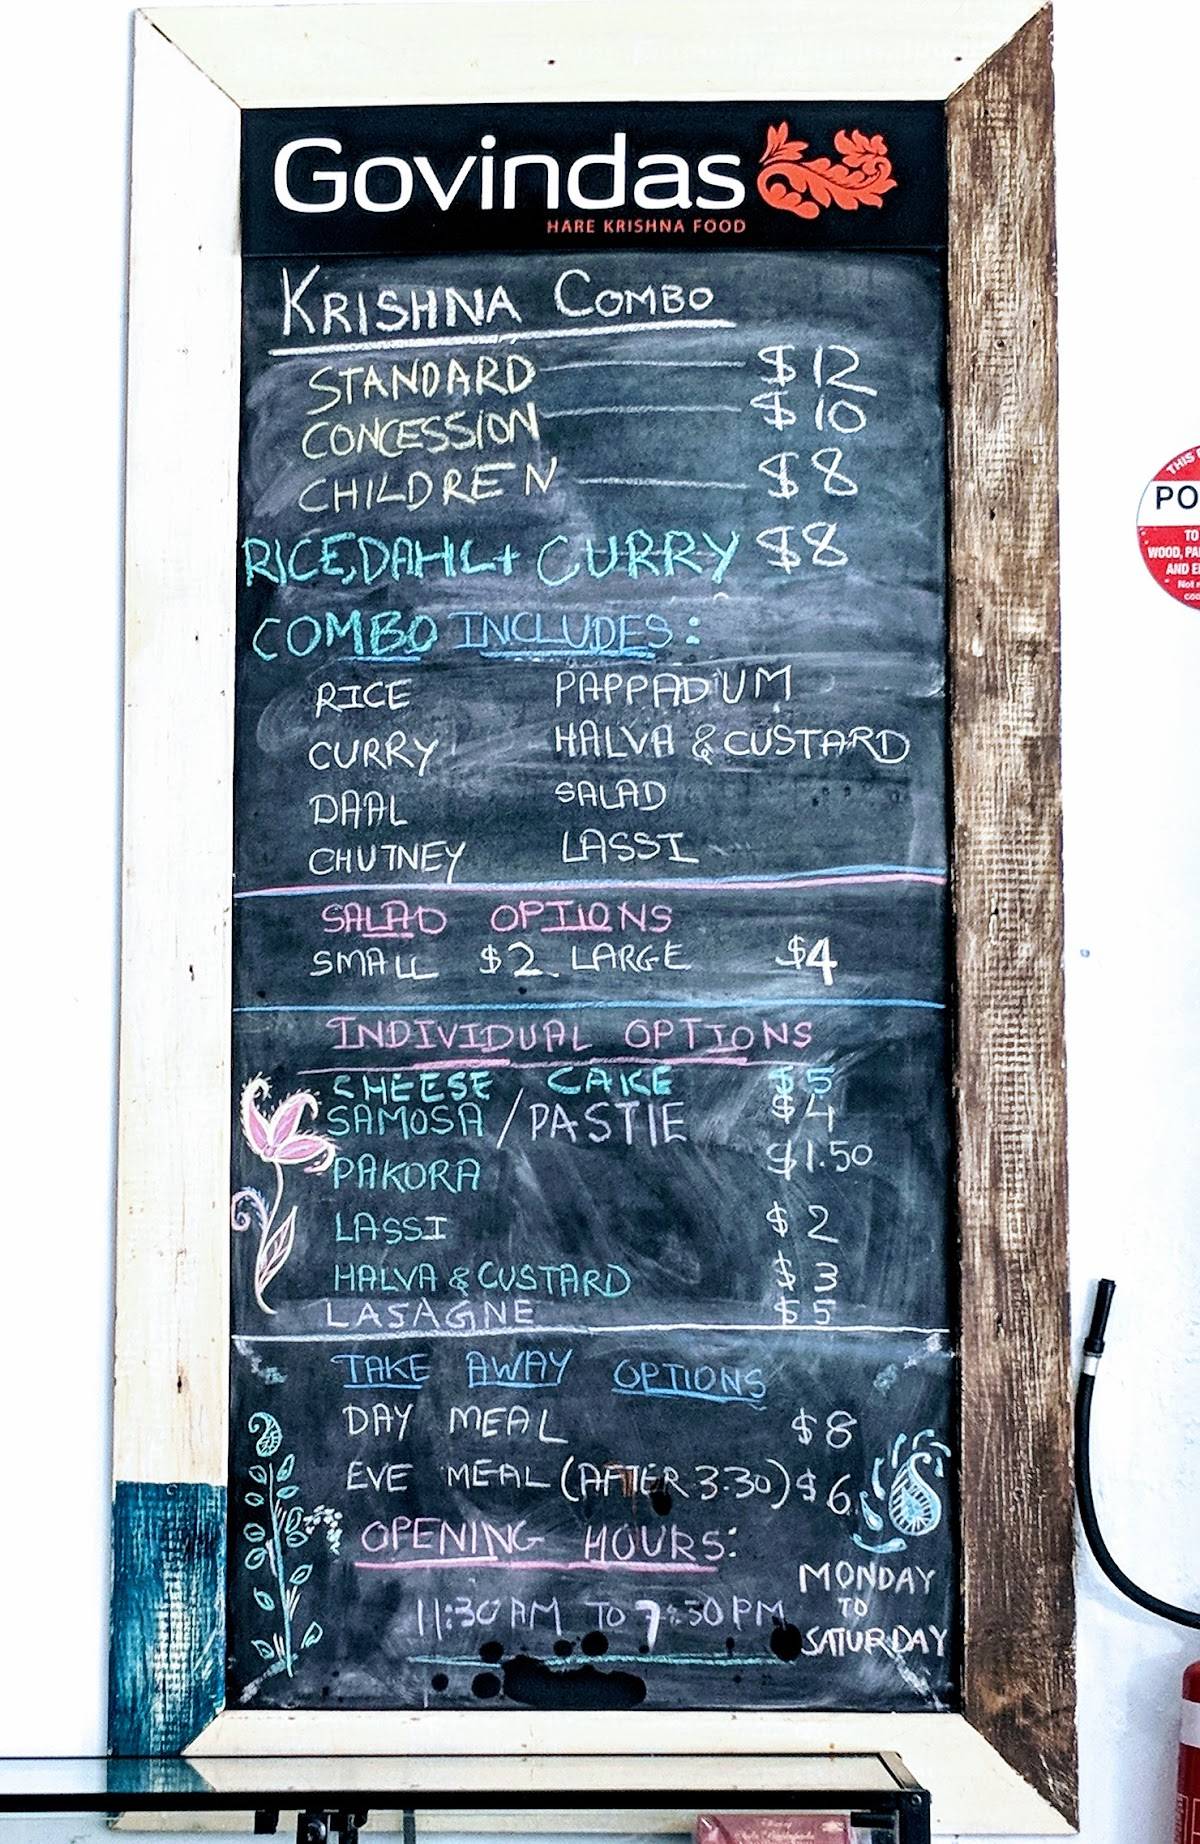 Govindas
HARE KRISHNA FOOD
KRISHNA COMBO
STANDARD $12
CONCESSION $10
CHILDREN $8
RICE,DAHL+ CURRY $8
COMBO INCLUDES:
RICE PAPPADIUM
CURRY HALVA & CUSTARD
DAAL SALAD
CHUTNEY LASSI
SALAD OPTIONS
SMALL $2 LARGE $4
INDIVIDUAL OPTIONS
CHEESE CAKE $5
SAMOSA/PASTIE $4
PAKORA $1.50
LASSI $2
HALVA & CUSTARD $3
LASAGNE $5
TAKE AWAY OPTIONS
DAY MEAL $8
EVE MEAL (AFTER 3.30) $6
OPENING HOURS:
11:30 AM TO 7:30 PM
MONDAY
TO
SATURDAY
THIS
PO
TO
WOOD, PA
AND E
Not